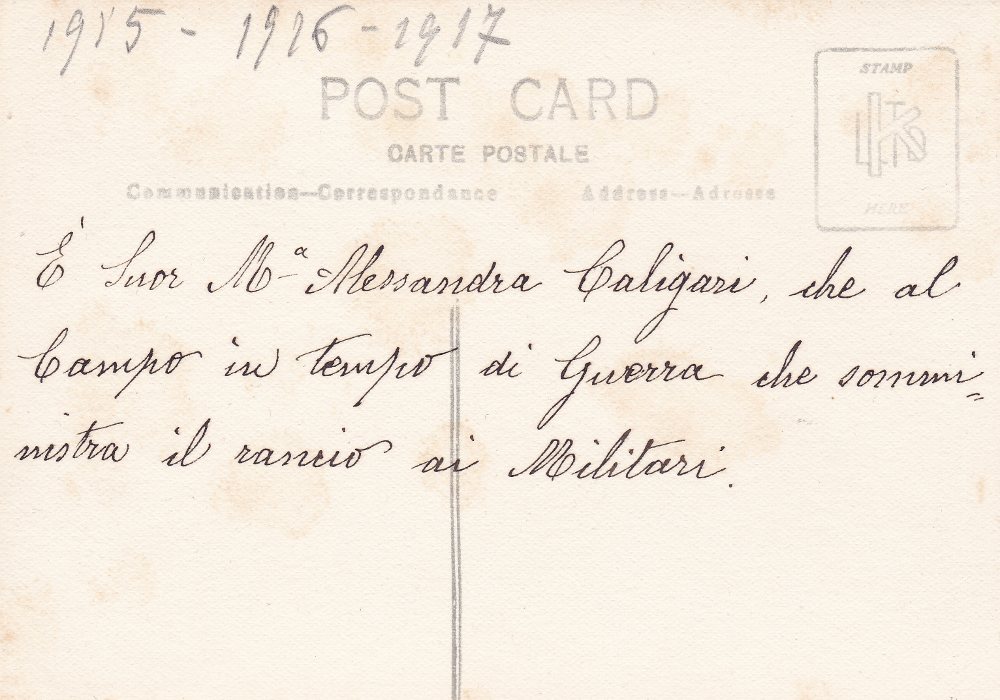 1915 - 1916 - 1917
POST CARD
CARTE POSTALE
Communication—Correspondance Address—Adresse
STAMP
HERE
È Suor Mª Alessandra Caligari, che al
Campo in tempo di Guerra che sommi=
nistra il rancio ai Militari.